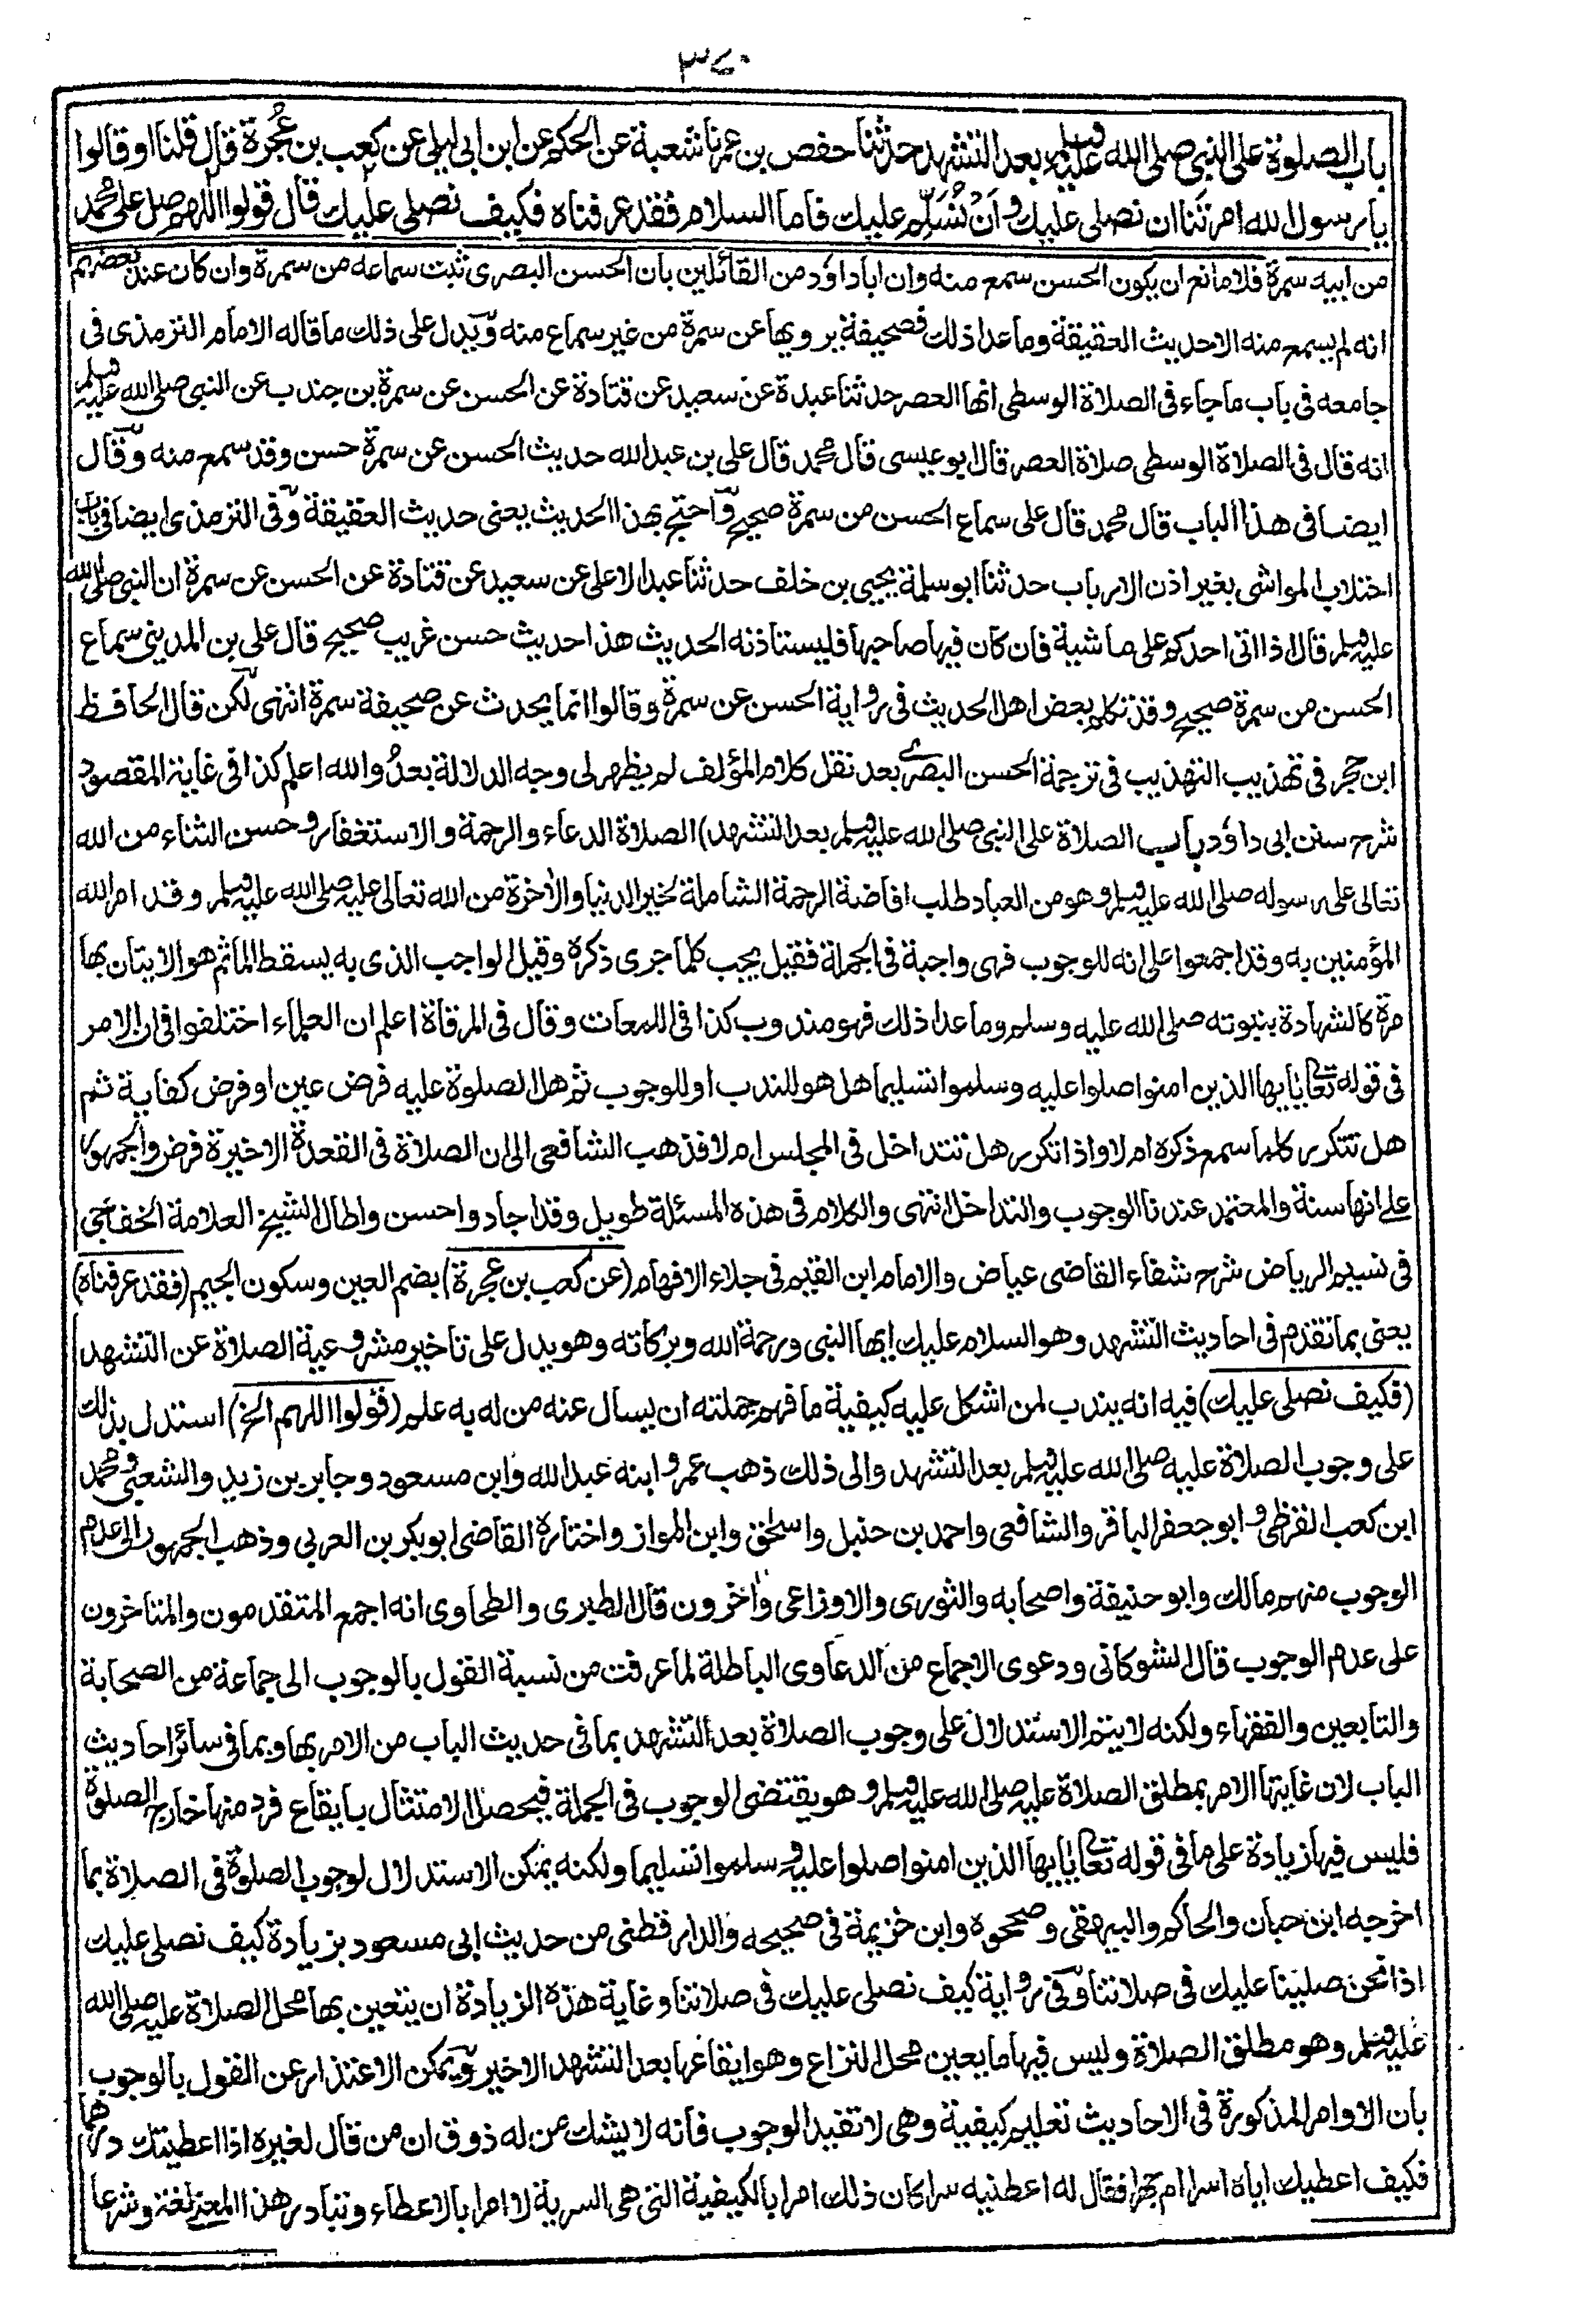 ٣٧٠
باب الصلوة على النبي صلى الله عليه وسلم بعد التشهد حدثنا حفص بن عمر نا شعبة عن الحكم عن ابن ابي ليلى عن كعب بن عُجْرة قال قلنا او قالوا
يا رسول الله امرتنا ان نصلى عليك وأن نُسَلِّم عليك فاما السلام فقد عرفناه فكيف نصلى عليك قال قولوا اللهم صل على محمد
من ابيه سمرة فلا مانع ان يكون الحسن سمع منه وان ابا داؤد من القائلين بان الحسن البصرى ثبت سماعه من سمرة وان كان عند بعضهم
انه لم يسمع منه الا حديث العقيقة وما عدا ذلك فصحيفة يرويها عن سمرة من غير سماع منه ويدل على ذلك ما قاله الامام الترمذى فى
جامعه فى باب ما جاء فى الصلاة الوسطى انها العصر حدثنا عبدة عن سعيد عن قتادة عن الحسن عن سمرة بن جندب عن النبى صلى الله عليه وسلم
انه قال فى الصلاة الوسطى صلاة العصر قال ابو عيسى قال محمد قال على بن عبد الله حديث الحسن عن سمرة حسن وقد سمع منه وقال
ايضا فى هذا الباب قال محمد قال على سماع الحسن من سمرة صحيح واحتج بهذا الحديث يعنى حديث العقيقة وفى الترمذى ايضا فى باب
احتلاب المواشى بغير اذن الارباب حدثنا ابو سلمة يحيى بن خلف حدثنا عبد الاعلى عن سعيد عن قتادة عن الحسن عن سمرة ان النبى صلى الله
عليه وسلم قال اذا اتى احدكم على ماشية فان كان فيها صاحبها فليستاذنه الحديث هذا حديث حسن غريب صحيح قال على بن المدينى سماع
الحسن من سمرة صحيح وقد تكلم بعض اهل الحديث فى رواية الحسن عن سمرة وقالوا انما يحدث عن صحيفة سمرة انتهى لكن قال الحافظ
ابن حجر فى تهذيب التهذيب فى ترجمة الحسن البصرى بعد نقل كلام المؤلف لم يظهر لى وجه الدلالة بعدُ والله اعلم كذا فى غاية المقصود
شرح سنن ابى داؤد باب الصلاة على النبى صلى الله عليه وسلم بعد التشهد) الصلاة الدعاء والرحمة والاستغفار وحسن الثناء من الله
تعالى على رسوله صلى الله عليه وسلم وهو من العباد طلب افاضة الرحمة الشاملة لخير الدنيا والأخرة من الله تعالى عليه صلى الله عليه وسلم وقد امر الله
المؤمنين به وقد اجمعوا على انه للوجوب فهى واجبة فى الجملة فقيل يجب كلما جرى ذكره وقيل الواجب الذى به يسقط المأثم هو الاتيان بها
مرة كالشهادة بنبوته صلى الله عليه وسلم وما عدا ذلك فهو مندوب كذا فى اللمعات وقال فى المرقاة اعلم ان العلماء اختلفوا فى ان الامر
فى قوله تعالى يايها الذين امنوا صلوا عليه وسلموا تسليما هل هو للندب او للوجوب ثم هل الصلوة عليه فرض عين او فرض كفاية ثم
هل تتكرر كلما سمع ذكره ام لا واذا تكرر هل تتداخل فى المجلس ام لا فذهب الشافعى الى ان الصلاة فى القعدة الاخيرة فرض والجمهور
على انها سنة والمعتمد عندنا الوجوب والتداخل انتهى والكلام فى هذه المسئلة طويل وقد اجاد واحسن واطال الشيخ العلامة الخفاجى
فى نسيم الرياض شرح شفاء القاضى عياض والامام ابن القيم فى جلاء الافهام (عن كعب بن عجرة) بضم العين وسكون الجيم (فقد عرفناه)
يعنى بما تقدم فى احاديث التشهد وهو السلام عليك ايها النبى ورحمة الله وبركاته وهو يدل على تاخير مشروعية الصلاة عن التشهد
(فكيف نصلى عليك) فيه انه يندب لمن اشكل عليه كيفية ما فهم جملته ان يسال عنه من له به علم (قولوا اللهم الخ) استدل بذلك
على وجوب الصلاة عليه صلى الله عليه وسلم بعد التشهد والى ذلك ذهب عمر وابنه عبد الله وابن مسعود وجابر بن زيد والشعبى ومحمد
ابن كعب القرظى وابو جعفر الباقر والشافعى واحمد بن حنبل واسحٰق وابن المواز واختاره القاضى ابو بكر بن العربى وذهب الجمهور الى عدم
الوجوب منهم مالك وابو حنيفة واصحابه والثورى والاوزاعى وأخرون قال الطبرى والطحاوى انه اجمع المتقدمون والمتاخرون
على عدم الوجوب قال الشوكانى ودعوى الاجماع من الدعاوى الباطلة لما عرفت من نسبة القول بالوجوب الى جماعة من الصحابة
والتابعين والفقهاء ولكنه لا يتم الاستدلال على وجوب الصلاة بعد التشهد بما فى حديث الباب من الامر بها وبما فى سائر احاديث
الباب لان غايتها الامر بمطلق الصلاة عليه صلى الله عليه وسلم وهو يقتضى الوجوب فى الجملة فيحصل الامتثال بايقاع فرد منها خارج الصلوة
فليس فيها زيادة على ما فى قوله تعالى يايها الذين امنوا صلوا عليه وسلموا تسليما ولكنه يمكن الاستدلال لوجوب الصلوة فى الصلاة بما
اخرجه ابن حبان والحاكم والبيهقى وصححوه وابن خزيمة فى صحيحه والدارقطنى من حديث ابى مسعود بزيادة كيف نصلى عليك
اذا نحن صلينا عليك فى صلاتنا وفى رواية كيف نصلى عليك فى صلاتنا وغاية هذه الزيادة ان يتعين بها محل الصلاة عليه صلى الله
عليه وسلم وهو مطلق الصلاة وليس فيها ما يعين محل النزاع وهو ايقاعها بعد التشهد الاخير ويمكن الاعتذار عن القول بالوجوب
بان الاوامر المذكورة فى الاحاديث تعليم كيفية وهى لا تفيد الوجوب فانه لا يشك من له ذوق ان من قال لغيره اذا اعطيتك درهما
فكيف اعطيك اياه اسرا ام جهرا فقال له اعطنيه سرا كان ذلك امرا بالكيفية التى هى السرية لا امرا بالاعطاء وتبادر هذا المعنى لغة وشرعا